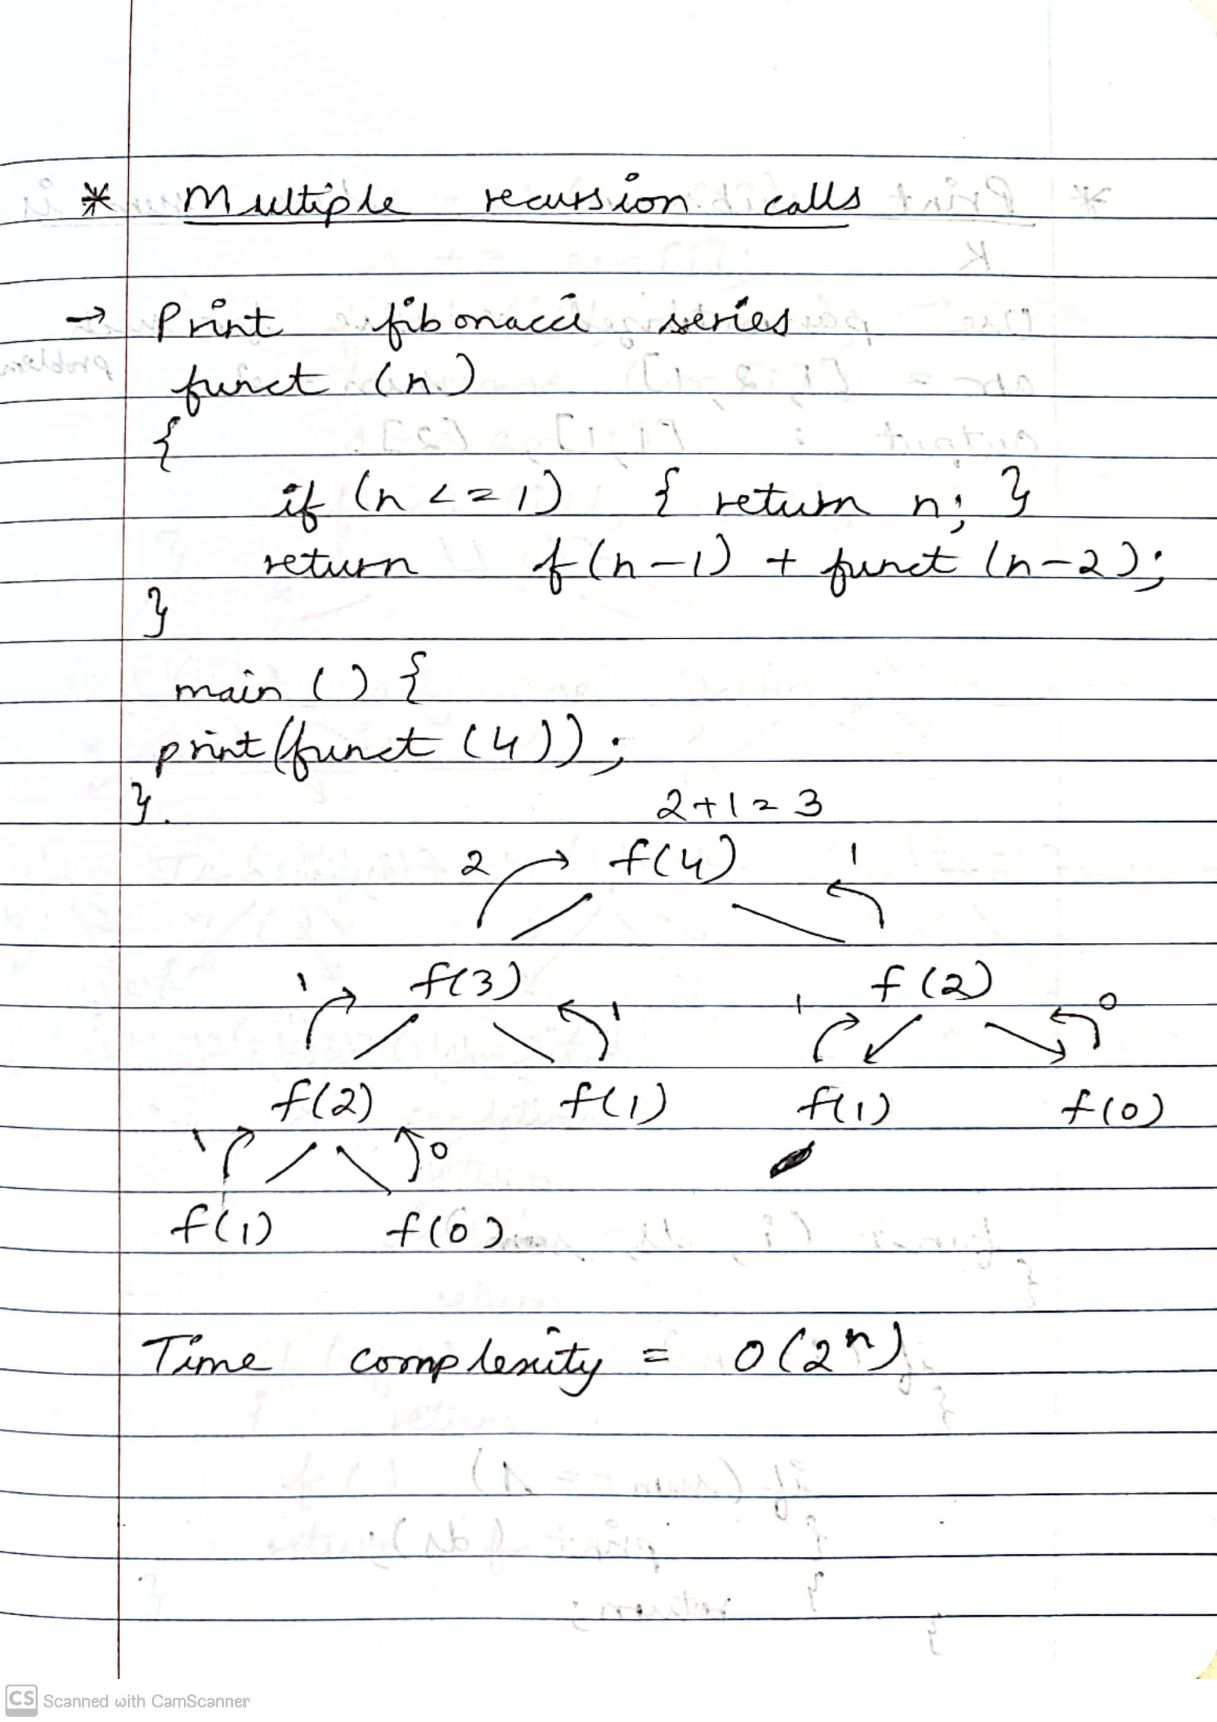 * Multiple recursion calls
→ Print fibonacci series
funct (n)
{
if (n <= 1) { return n; }
return f(n-1) + funct (n-2);
}
main () {
print(funct (4));
}.
2+1=3
2 f(4) 1
1 f(3) 1 1 f(2) 0
f(2) f(1) f(1) f(0)
1 0
f(1) f(0)
Time complexity = O(2ⁿ)
CS Scanned with CamScanner